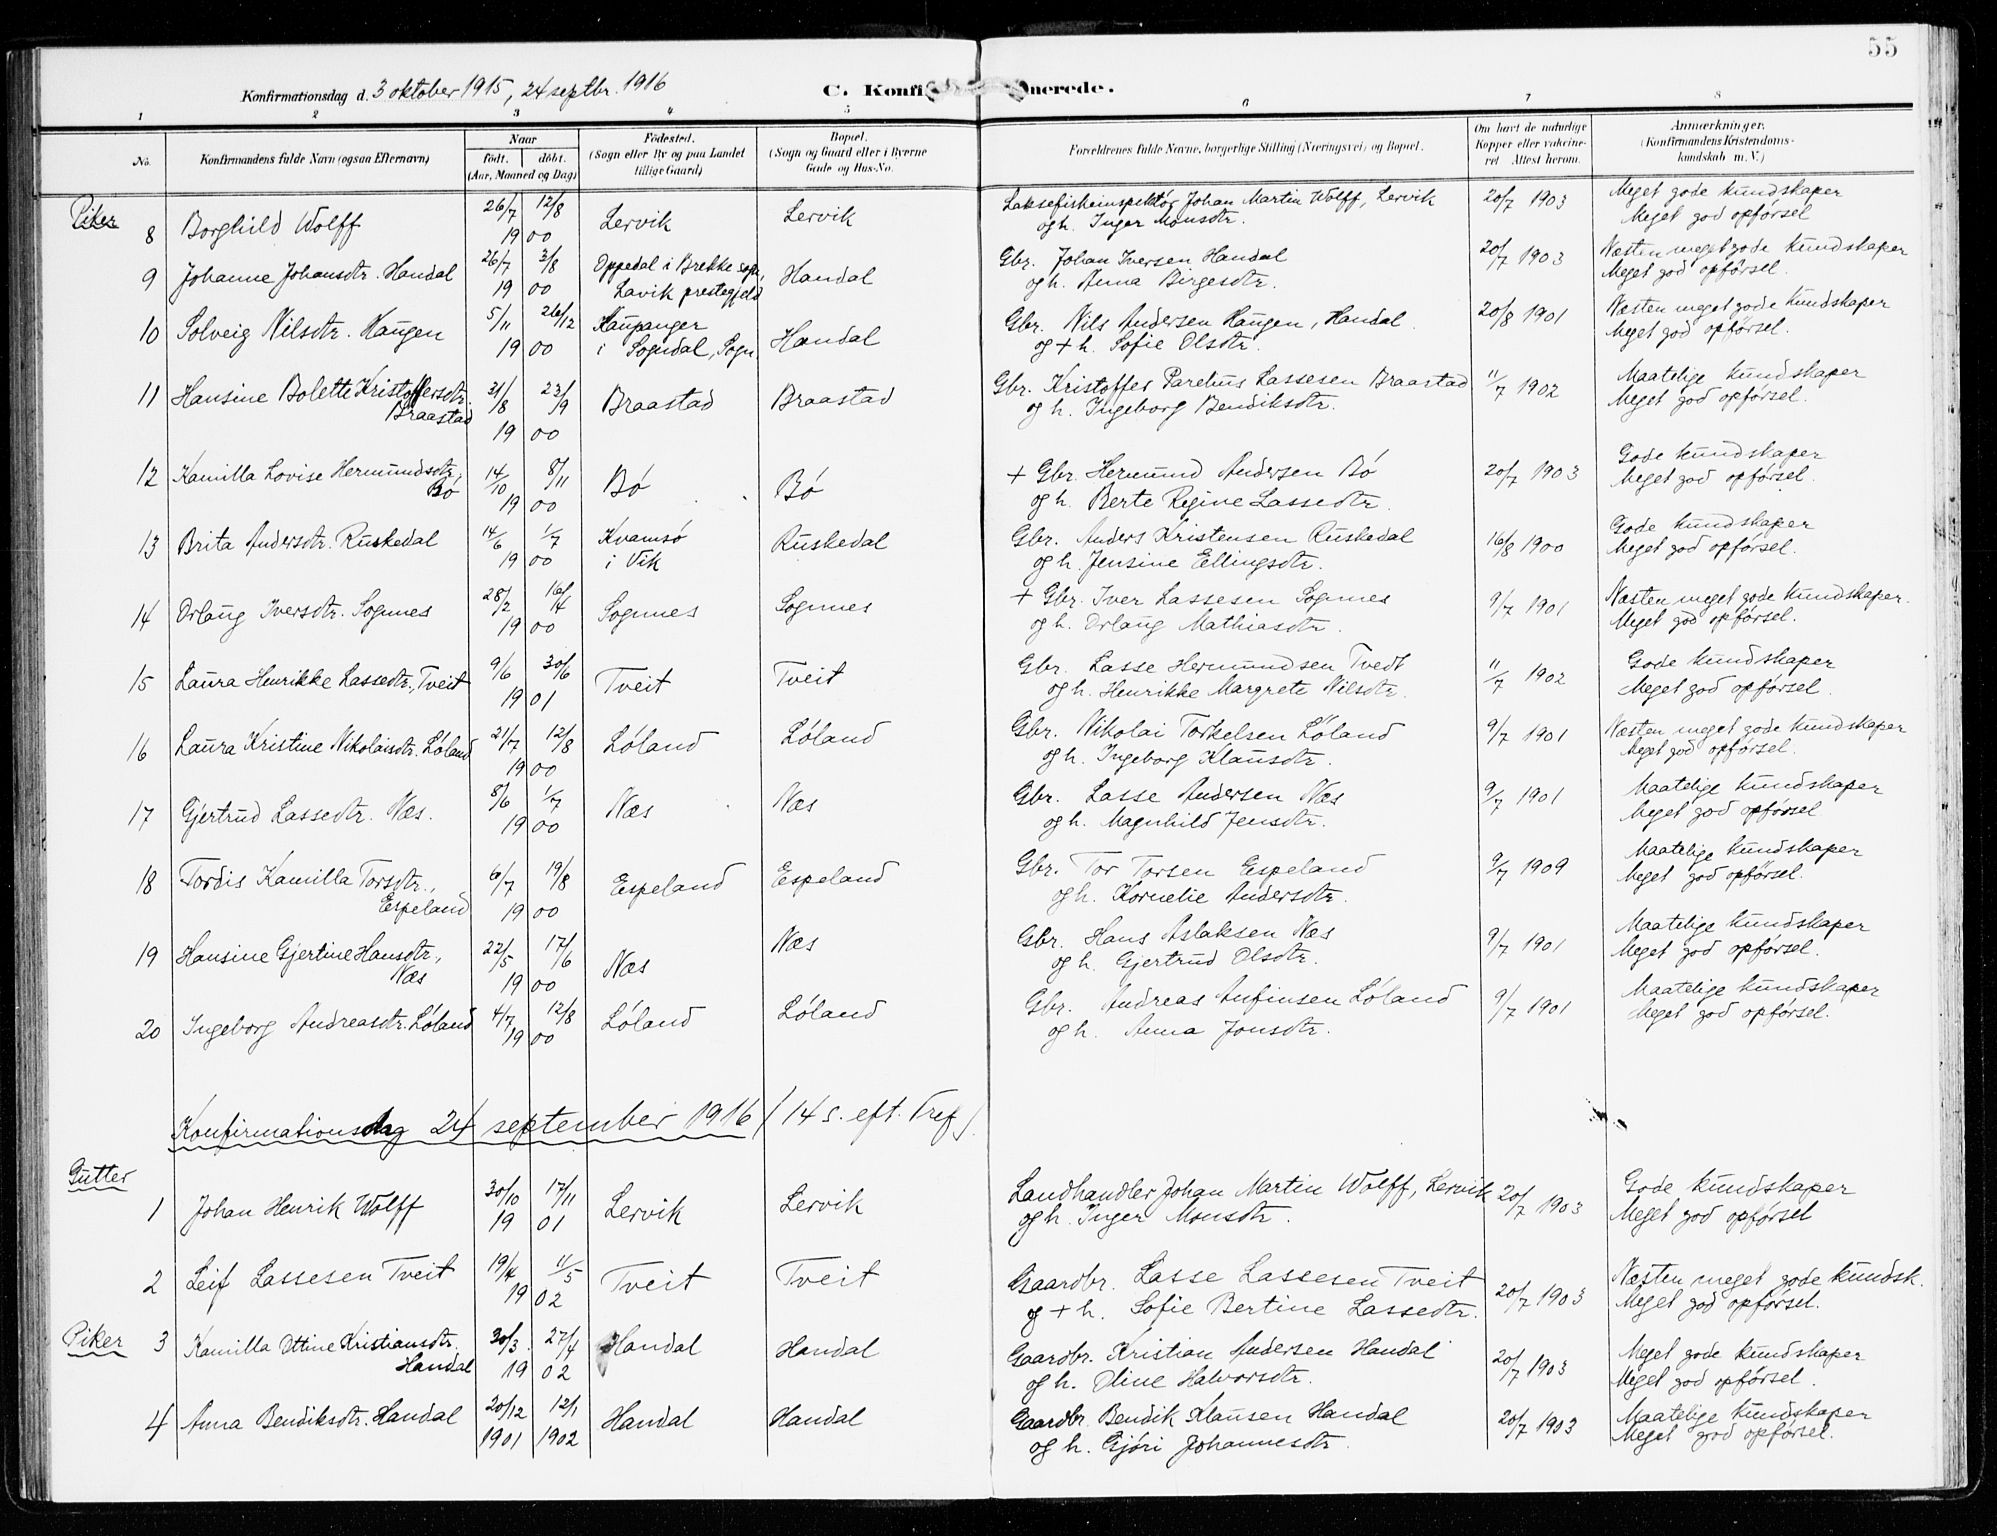 55
Konfirmationsdag d. 3 oktober 1915, 24 septbr. 1916
C. Konfi nerede.
1 2 3 4 5 6 7 8
No. Konfirmandens fulde Navn (ogsaa Efternavn) Naar født. døbt. (Aar, Maaned og Dag) Fødested. (Sogn eller By og paa Landet tillige Gaard) Bopæl. (Sogn og Gaard eller i Byerne Gade og Hus-No. Forældrenes fulde Navne, borgerlige Stilling (Næringsvei) og Bopæl. Om havt de naturlige Kopper eller vakcineret Attest herom. Anmærkninger. (Konfirmandens Kristendomskundskab m. V.)
Piker
8 Borghild Wolff 26/7 12/8 1900 Lervik Lervik Laksefiskeinspektør Johan Martin Wolff, Lervik 20/7 1903 Meget gode kundskaper
og h. Inger Monsdtr. Meget god opførsel
9 Johanne Johansdtr. Handal 26/7 3/8 1900 Oppedal i Brekke sogn, Handal Gbr. Johan Iversen Handal 20/7 1903 Næsten meget gode kundskaper
Lavik prestegjeld og h. Anna Birgesdtr. Meget god opførsel.
10 Solveig Nilsdtr. Haugen 5/11 26/12 1900 Kaupanger Handal Gbr. Nils Andersen Haugen, Handal 20/8 1901 Næsten meget gode kundskaper
i Sogndal, Sogn og + h. Sofie Olsdtr. Meget god opførsel.
11 Hansine Bolette Kristoffersdtr. 31/8 23/9 1900 Braastad Braastad Gbr. Kristoffer Parelius Lassesen Braastad 11/7 1902 Maatelige kundskaper
Braastad og h. Ingeborg Bendiksdtr. Meget god opførsel.
12 Kamilla Lovise Hermundsdtr., 14/10 8/11 1900 Bø Bø + Gbr. Hermund Andersen Bø 20/7 1903 Gode kundskaper
Bø og h. Berte Regine Lassedtr. Meget god opførsel.
13 Brita Andersdtr. Ruskedal 14/6 1/7 1900 Kvamsø Ruskedal Gbr. Anders Kristensen Ruskedal 16/8 1900 Gode kundskaper
i Vik og h. Jensine Ellingsdtr. Meget god opførsel.
14 Orlaug Iversdtr. Sognnes 28/2 16/4 1900 Sognnes Sognnes + Gbr. Iver Lassesen Sognnes 9/7 1901 Næsten meget gode kundskaper.
og h. Orlaug Mathiasdtr. Meget god opførsel.
15 Laura Henrikke Lassedtr. Tveit 9/6 30/6 1901 Tveit Tveit Gbr. Lasse Hermundsen Tvedt 11/7 1902 Gode kundskaper
og h. Henrikke Margrete Nilsdtr. Meget god opførsel.
16 Laura Kristine Nikolaisdtr. Løland 21/7 12/8 1900 Løland Løland Gbr. Nikolai Torkelsen Løland 9/7 1901 Næsten meget gode kundskaper
og h. Ingeborg Klausdtr. Meget god opførsel.
17 Gjertrud Lassedtr. Næs. 8/6 1/7 1900 Næs Næs Gbr. Lasse Andersen Næs 9/7 1901 Maatelige kundskaper
og h. Magnhild Jensdtr. Meget god opførsel
18 Tordis Kamilla Torsdtr., 6/7 19/8 1900 Espeland Espeland Gbr. Tor Torsen Espeland 9/7 1909 Maatelige kundskaper
Espeland og h. Kornelie Andersdtr. Meget god opførsel.
19 Hansine Gjertine Hansdtr., 22/5 17/6 1900 Næs Næs Gbr. Hans Aslaksen Næs 9/7 1901 Maatelige kundskaper
Næs og h. Gjertrud Olsdtr. Meget god opførsel.
20 Ingeborg Andreasdtr. Løland 4/7 12/8 1900 Løland Løland Gbr. Andreas Anfinsen Løland 9/7 1901 Maatelige kundskaper
og h. Anna Jonsdtr. Meget god opførsel.
Konfirmationsdag 24 september 1916 (14 s. eft. Tref).
Gutter
1 Johan Henrik Wolff 30/10 17/11 1901 Lervik Lervik Landhandler Johan Martin Wolff, Lervik 20/7 1903 Gode kundskaper
og h. Inger Monsdtr. Meget god opførsel
2 Leif Lassesen Tveit 19/4 11/5 1902 Tveit Tveit Gaardbr. Lasse Lassesen Tveit 20/7 1903 Næsten meget gode kundsk.
og + h. Sofie Bertine Lassedtr. Meget god opførsel.
Piker
3 Kamilla Otine Kristiansdtr. 30/3 27/4 1902 Handal Handal Gaardbr. Kristian Andersen Handal 20/7 1903 Meget gode kundskaper
Handal og h. Oline Halvorsdtr. Meget god opførsel.
4 Anna Bendiksdtr. Handal 20/12 1901 12/1 1902 Handal Handal Gaardbr. Bendik Klausen Handal 20/7 1903 Maatelige kundskaper
og h. Gjøri Johannesdtr. Meget god opførsel.